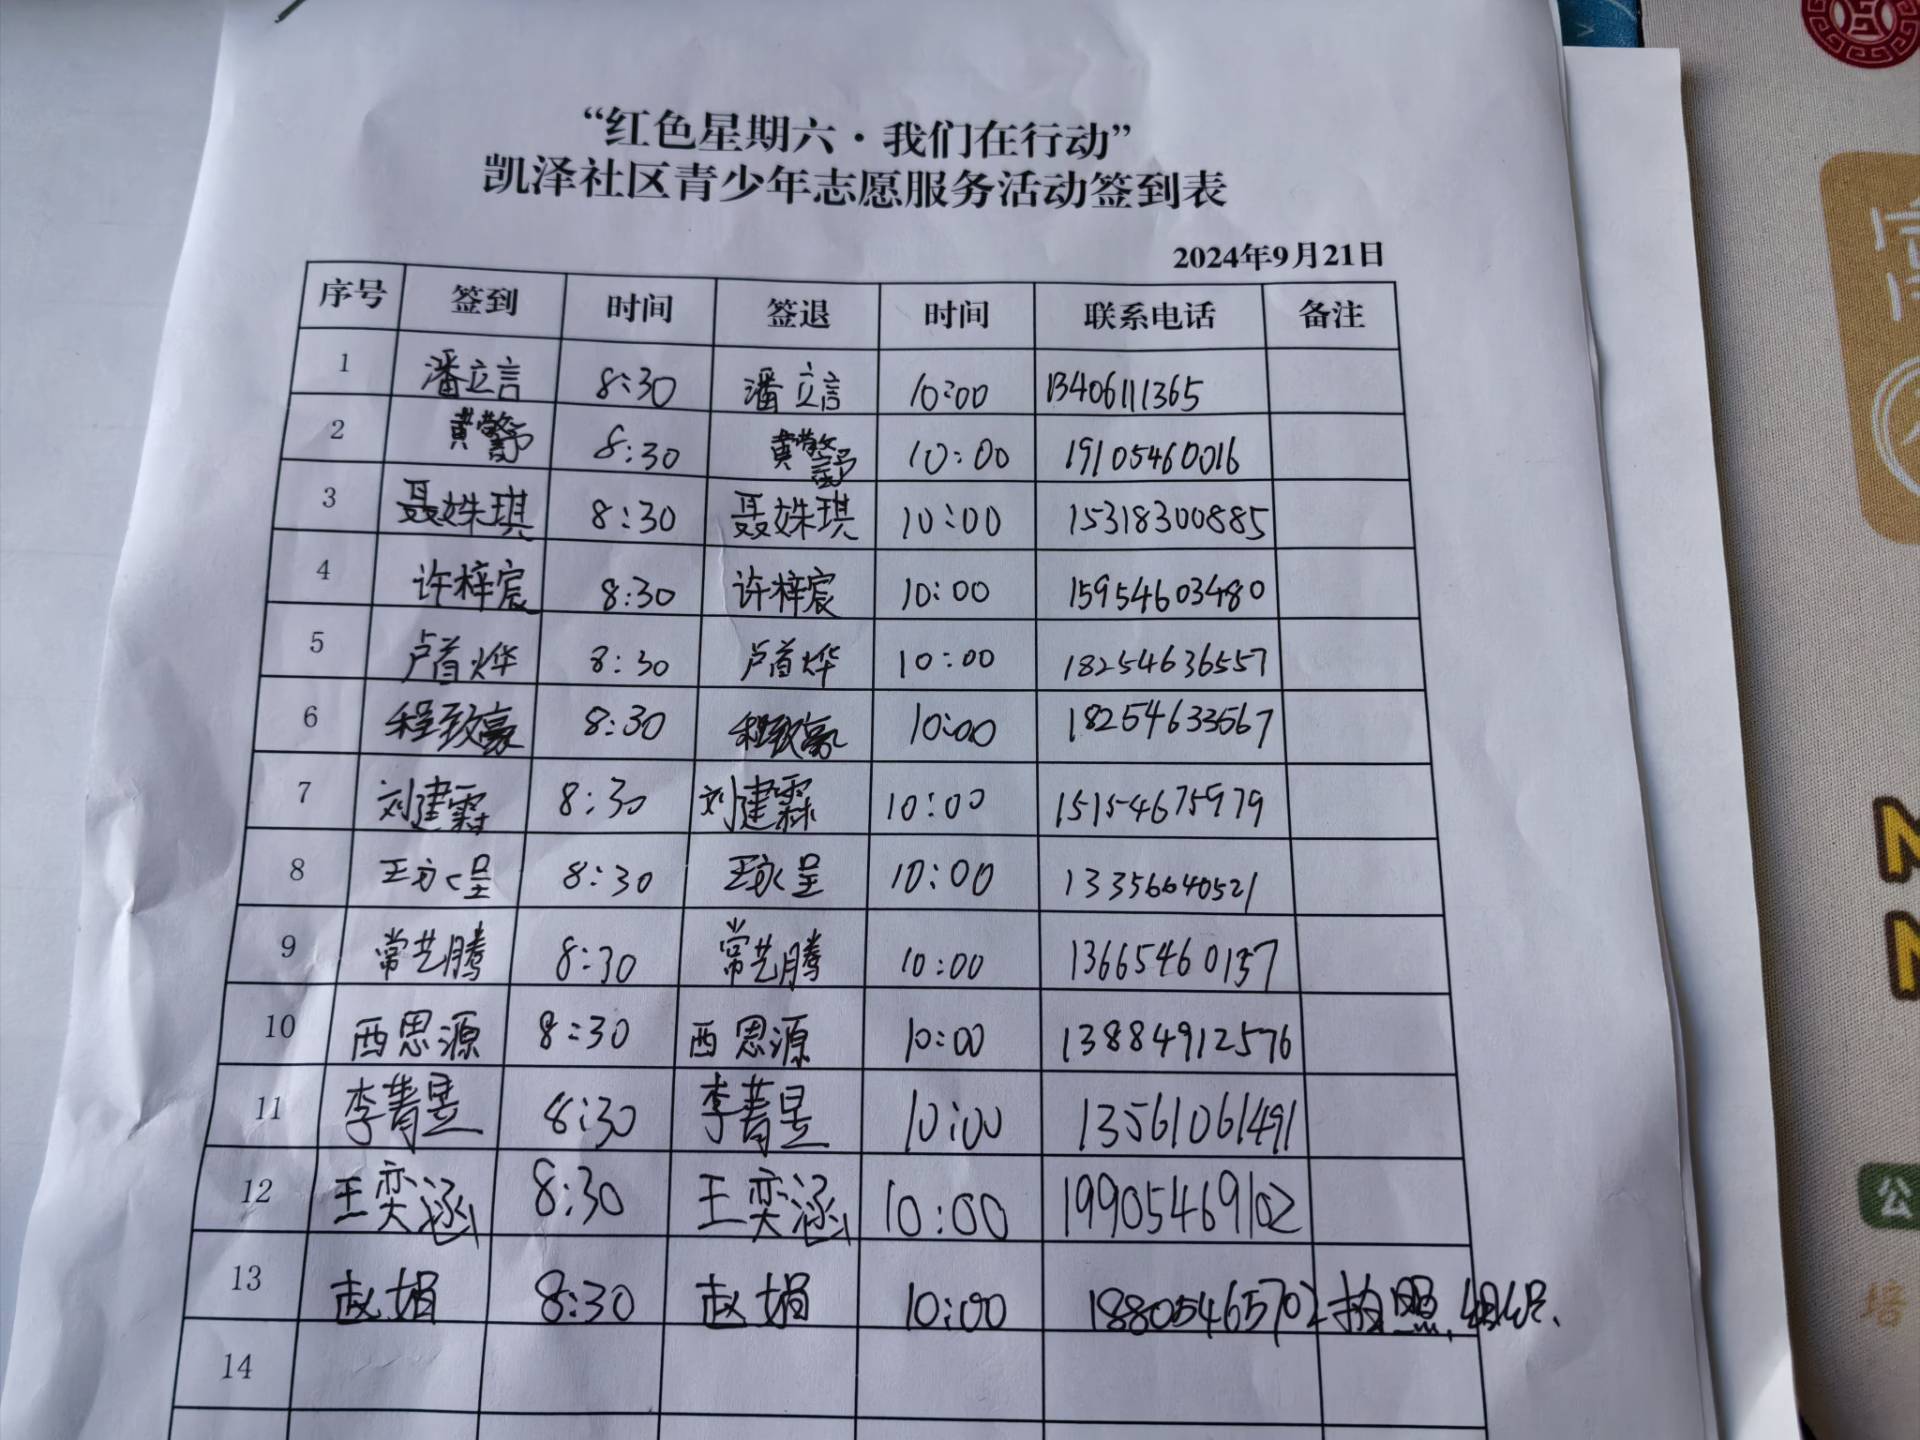 “红色星期六·我们在行动”
凯泽社区青少年志愿服务活动签到表
2024年9月21日
序号 签到 时间 签退 时间 联系电话 备注
1 潘立言 8:30 潘立言 10:00 13406111365
2 黄 8:30 黄 10:00 19105460016
3 聂姝琪 8:30 聂姝琪 10:00 15318300885
4 许梓宸 8:30 许梓宸 10:00 15954603480
5 卢首烨 8:30 卢首烨 10:00 18254636557
6 程致豪 8:30 程致豪 10:00 18254633567
7 刘建霖 8:30 刘建霖 10:00 15154675979
8 王泳呈 8:30 王泳呈 10:00 13356640521
9 常艺腾 8:30 常艺腾 10:00 13665460137
10 西思源 8:30 西思源 10:00 13884912576
11 李菁昱 8:30 李菁昱 10:00 13561061491
12 王奕涵 8:30 王奕涵 10:00 19905469102
13 赵娟 8:30 赵娟 10:00 18805465702 拍照、组织.
14
公
培